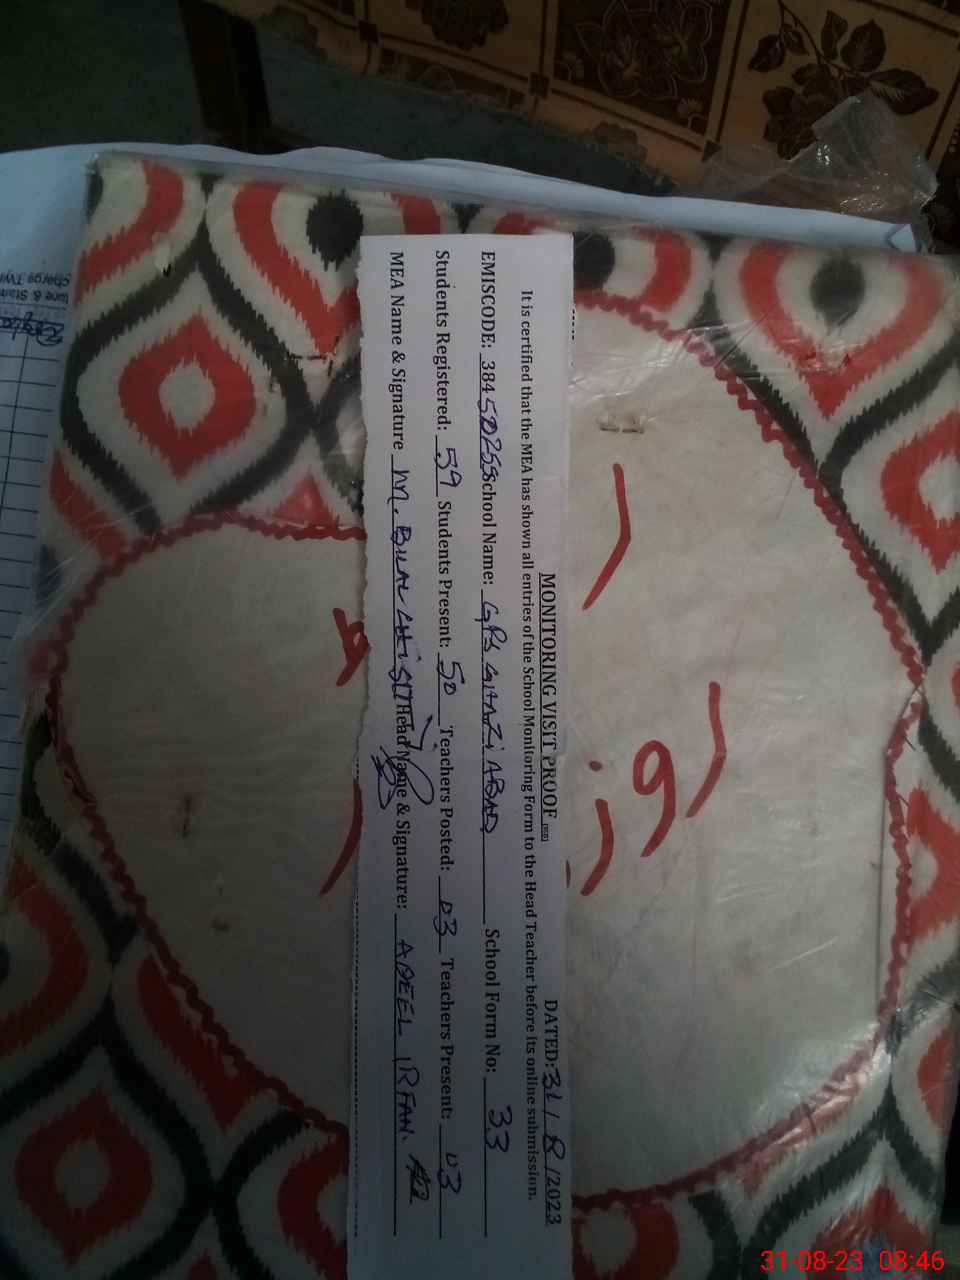 MONITORING VISIT PROOF
DATED: 31/8/2023
It is certified that the MEA has shown all entries of the School Monitoring Form to the Head Teacher before its online submission.
EMISCODE: 38450258 School Name: GPS GHAZI ABAD School Form No: 33
Students Registered: 59 Students Present: 50 Teachers Posted: 03 Teachers Present: 03
MEA Name & Signature M. BILAL CHISTI Head Name & Signature: ADEEL IRFAN.
31-08-23 08:46